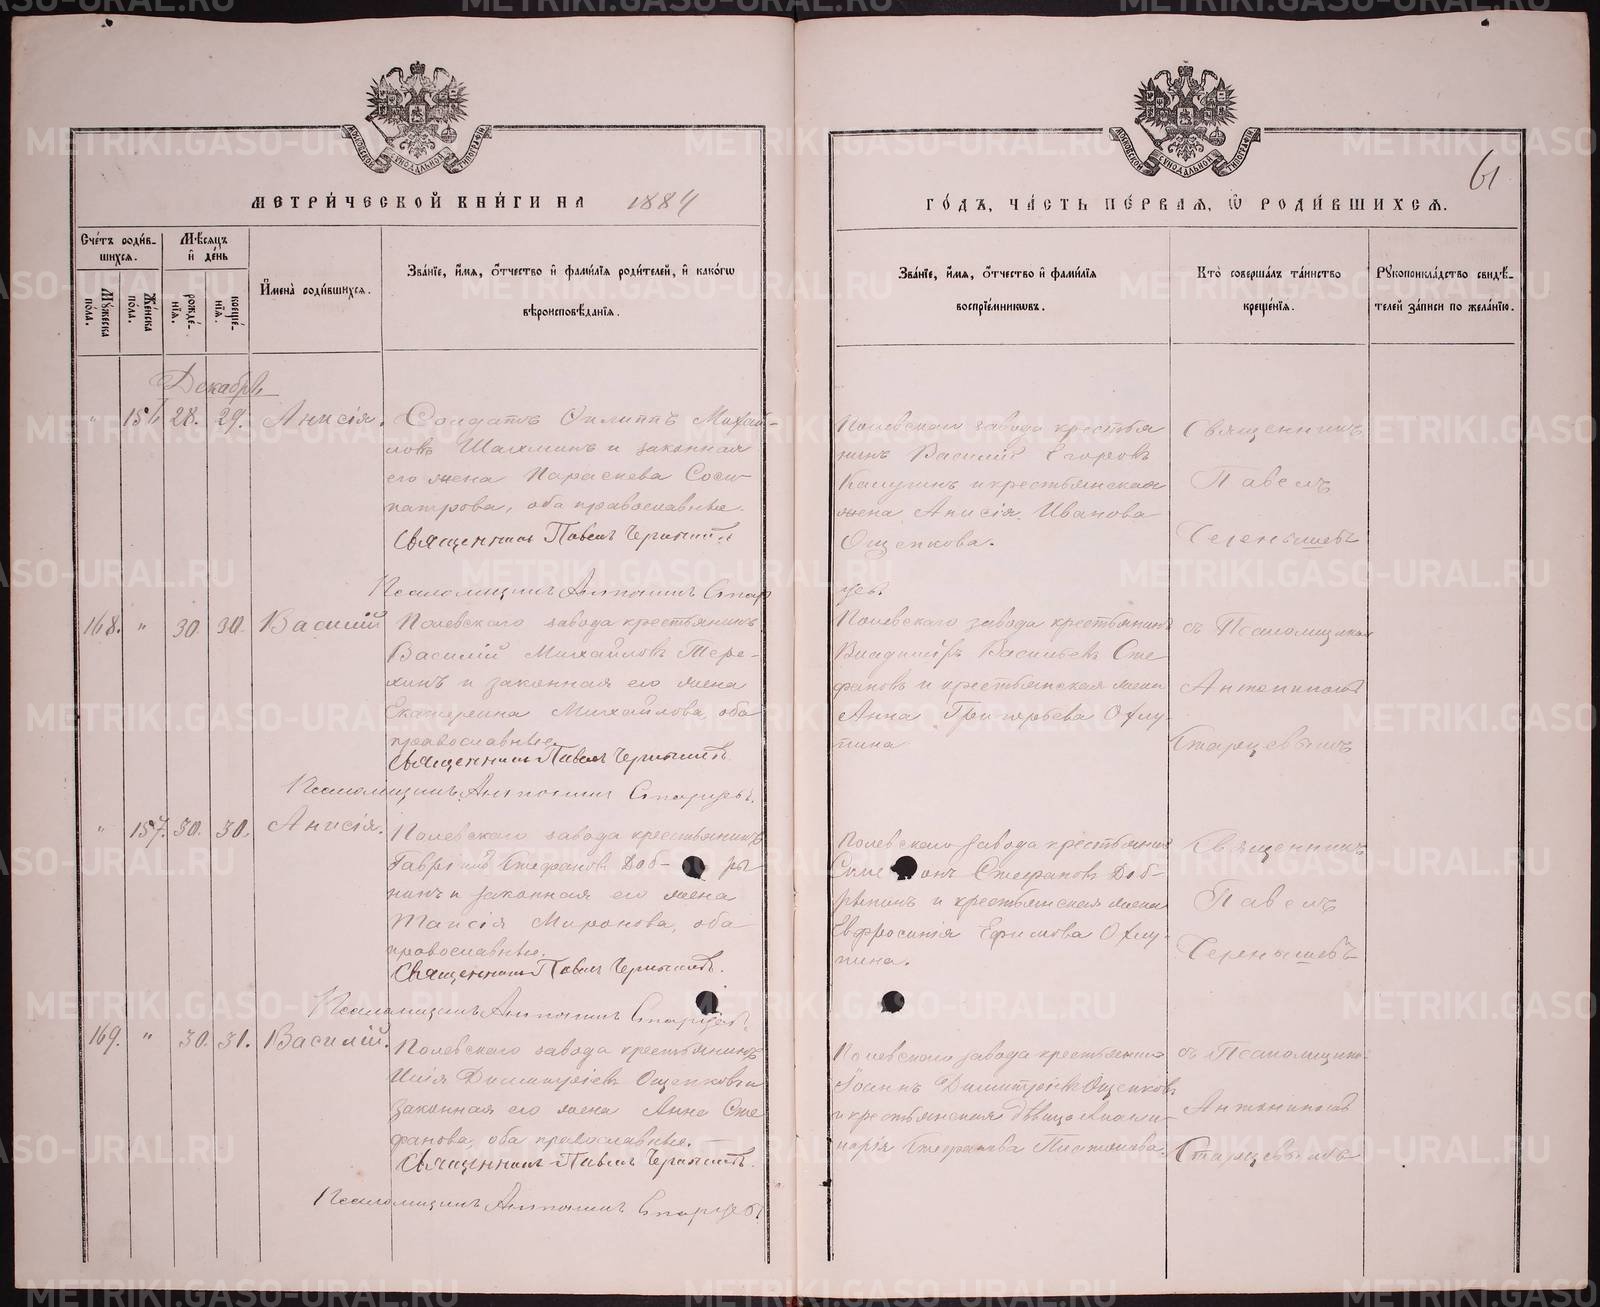 МЕТРИ́ЧЕСКОЙ КНИ́ГИ НА 1884
ГО́ДЪ, ЧА́СТЬ ПЕ́РВАЯ, Ѡ РОДИ́ВШИХСЯ.
61
Сче́тъ роди́в-
шихся.
Му́жеска по́ла.
Же́нска по́ла.
Мѣ́сяцъ и҆ де́нь
рожде́-
нїя.
креще́-
нїя.
И҆мена̀ роди́вшихся.
Зва́нїе, и҆́мя, ѻ҆́тчество и҆ фами́лїя роди́телей, и҆ како́гѡ
вѣроисповѣ́данїя.
Зва́нїе, и҆́мя, ѻ҆́тчество и҆ фами́лїя
воспрїе́мникѡвъ.
Кто̀ соверша́лъ та́инство
креще́нїя.
Рукоприкла́дство свидѣ́-
телей за́писи по жела́нїю.
Декабрь
" 156 28. 29. Анисія.
Солдатъ Филиппъ Михай-
ловъ Шахминъ и законная
его жена Параскева Соси-
патрова, оба православные.
Священникъ Павелъ
Псаломщикъ Антонинъ Старцевъ.
Полевскаго завода крестья
нинъ Василій Егоровъ
Калугинъ и крестьянская
жена Анисія Иванова
Ощепкова.
Священникъ
Павелъ
168. " 30. 30. Василій
Полевскаго завода крестьянинъ
Василій Михайловъ Тере-
хинъ и законная его жена
Екатерина Михайлова, оба
православные.
Священникъ Павелъ
Псаломщикъ Антонинъ Старцевъ.
Полевскаго завода крестьянинъ
Владиміръ Васильевъ Сте
фановъ и крестьянская жена
Анна Григорьева
съ Псаломщикомъ
Антониномъ
Старцевымъ
" 157. 30. 30. Анисія.
Полевскаго завода крестьянинъ
Гавріилъ Стефановъ Доб- ры
нинъ и законная его жена
Таисія Миронова, оба
православные.
Священникъ Павелъ
Псаломщикъ Антонинъ Старцевъ.
Полевскаго завода крестьянинъ
Стефановъ Доб-
рынинъ и крестьянская жена
Евфросинія Ефимова
Священникъ
Павелъ
169. " 30. 31. Василій.
Полевскаго завода крестьянинъ
Илія Димитріевъ Ощепковъ и
законная его жена Анна Сте
фанова, оба православные.
Священникъ Павелъ
Псаломщикъ Антонинъ Старцевъ.
Полевскаго завода крестьянинъ
Іоаннъ Димитріевъ Ощепковъ
и крестьянская дѣвица
Стефанова
съ Псаломщикомъ
Антониномъ
Старцевымъ
METRIKI.GASO-URAL.RU